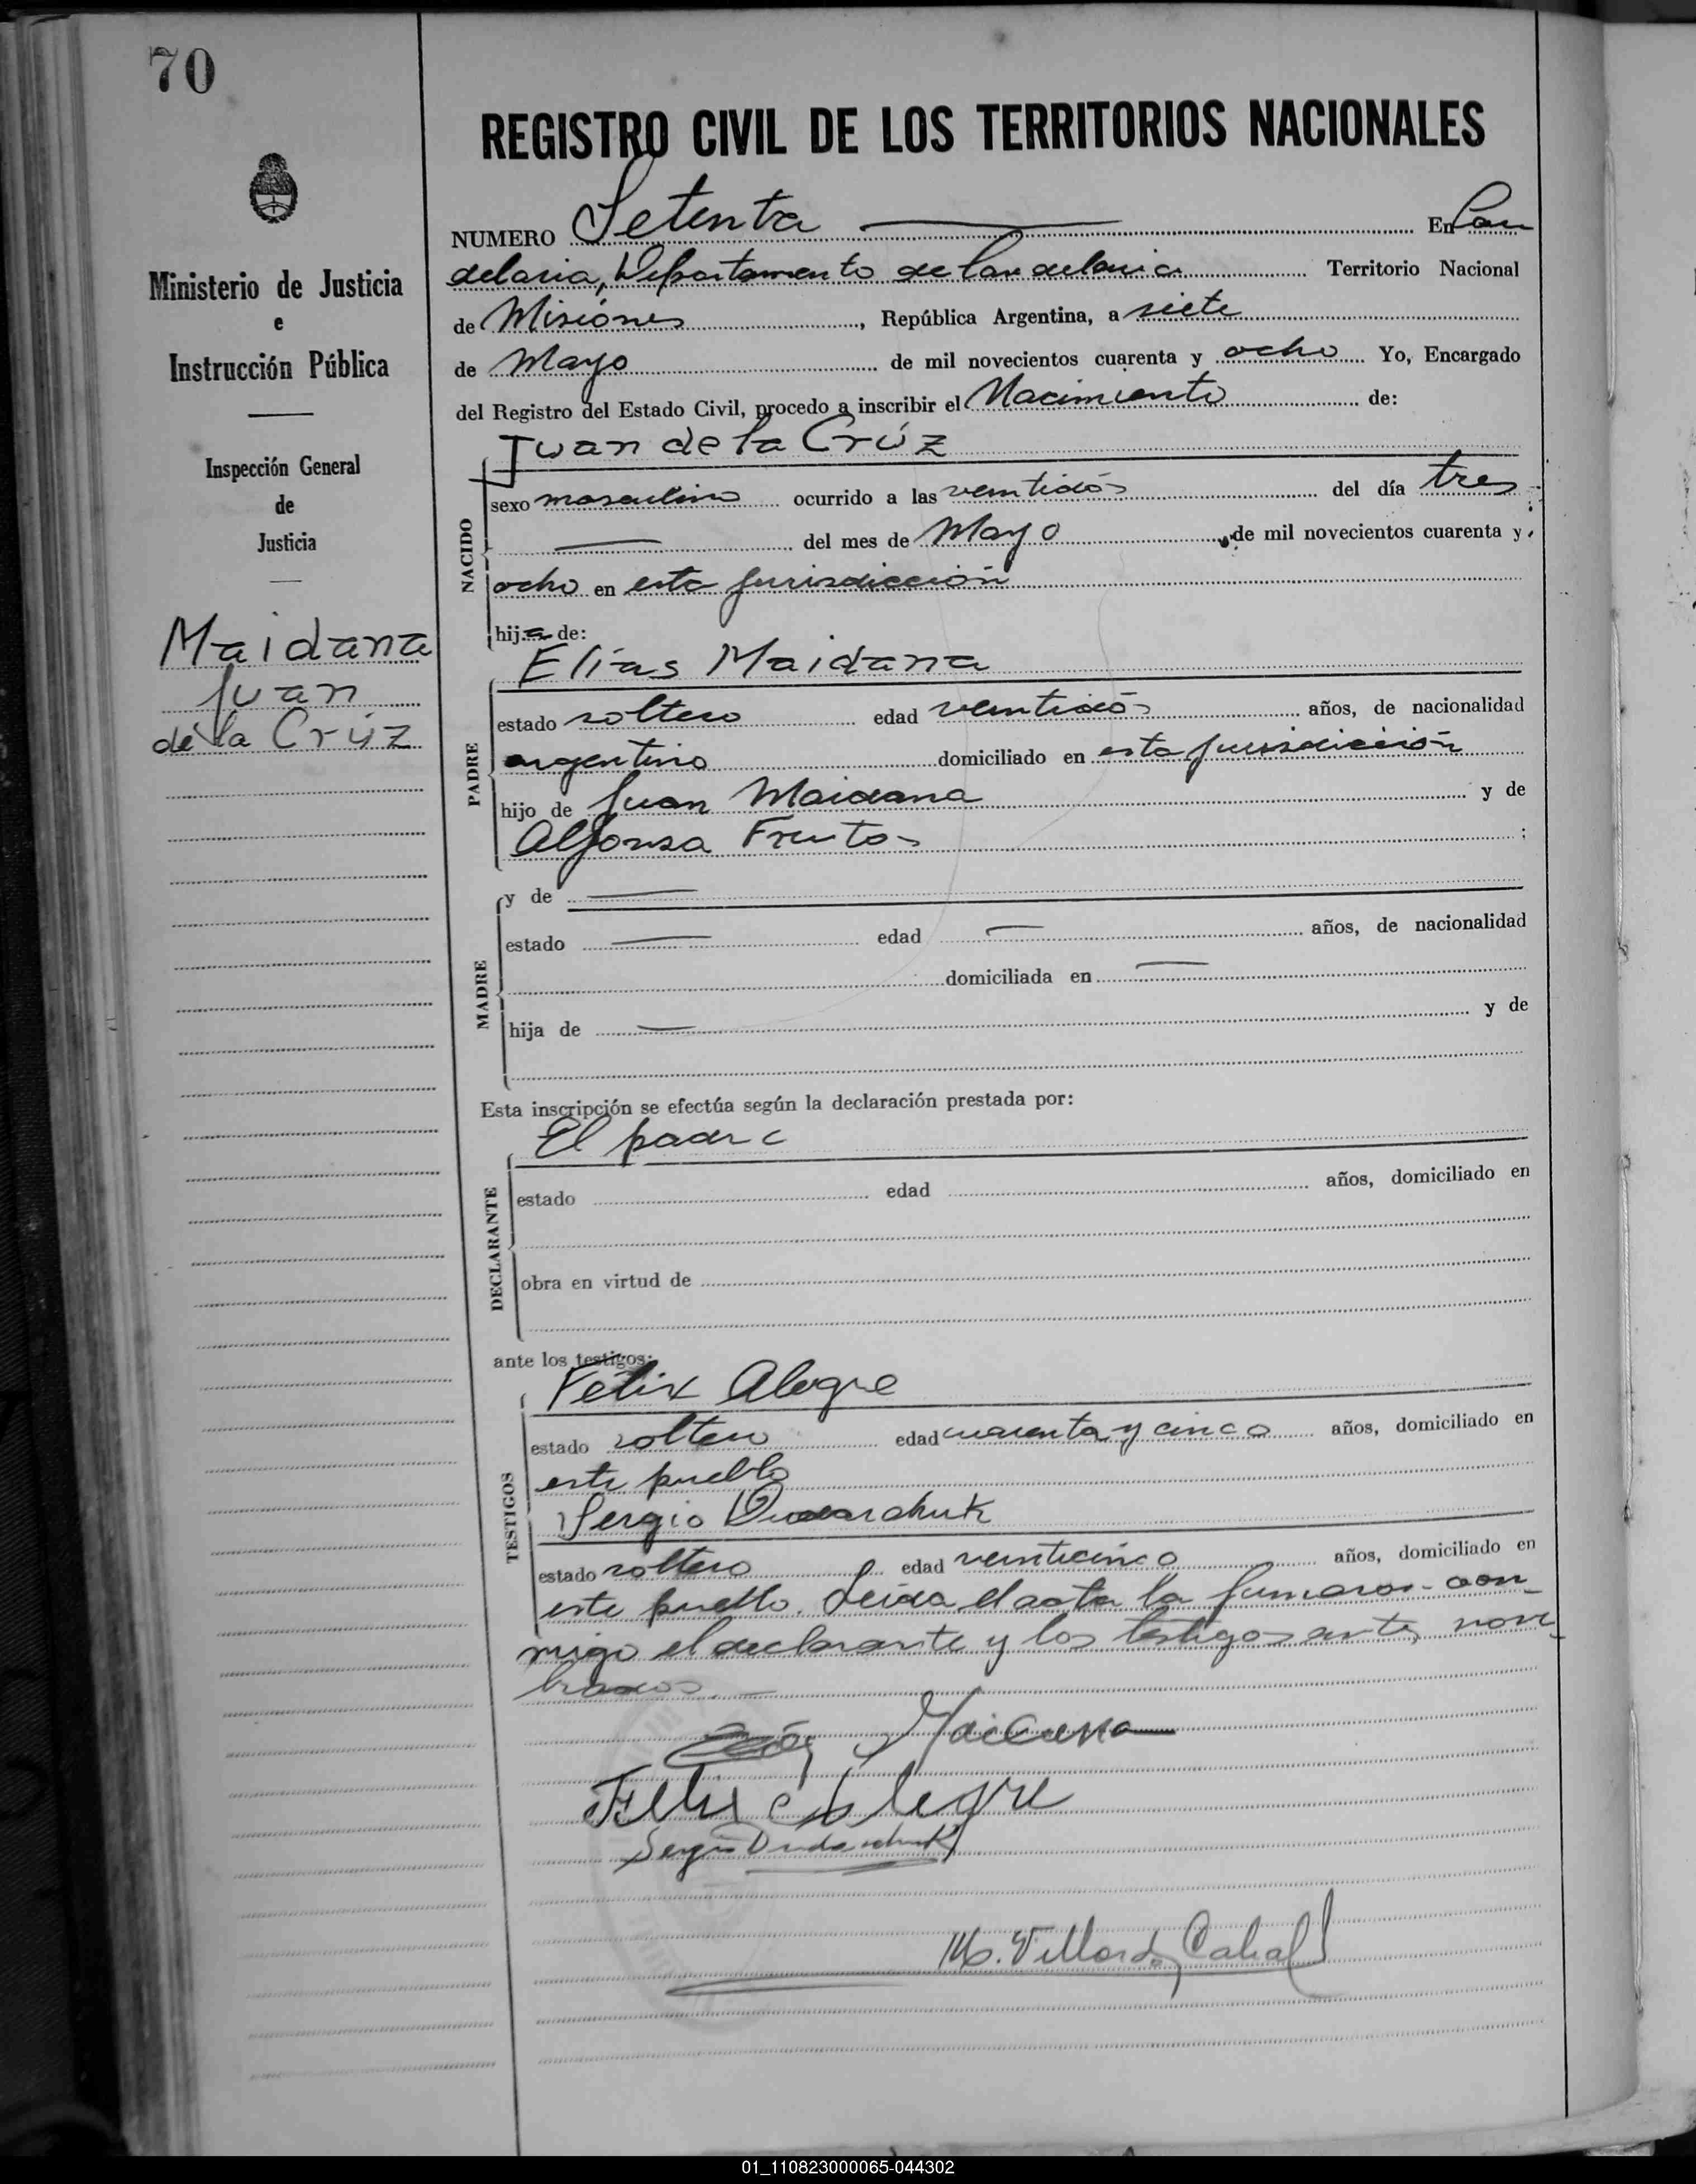 70
REGISTRO CIVIL DE LOS TERRITORIOS NACIONALES
Ministerio de Justicia
e
Instrucción Pública
Inspección General
de
Justicia
Maidana
Juan
de la Crúz
NUMERO Setenta En Can
delaria, Departamento de Candelaria Territorio Nacional
de Misiónes, República Argentina, a siete
de Mayo de mil novecientos cuarenta y ocho Yo, Encargado
del Registro del Estado Civil, procedo a inscribir el Nacimiento de:
Juan de la Crúz
NACIDO
sexo masculino ocurrido a las veintidós del día tres
del mes de Mayo de mil novecientos cuarenta y
ocho en esta jurisdicción
hij o de:
Elías Maidana
PADRE
estado soltero edad veintidós años, de nacionalidad
argentino domiciliado en esta jurisdicción
hijo de Juan Maidana y de
Alfonsa Frutos ;
MADRE
y de
estado edad años, de nacionalidad
domiciliada en
hija de y de
Esta inscripción se efectúa según la declaración prestada por:
El padre
DECLARANTE
estado edad años, domiciliado en
obra en virtud de
ante los testigos:
Felix Alegre
TESTIGOS
estado soltero edad cuarenta y cinco años, domiciliado en
este pueblo
Sergio
estado soltero edad veinticinco años, domiciliado en
este pueblo. Leida el acta la firmaron con
migo el declarante y los testigos antes nom
brados.
Maidana
Felix Alegre
Sergio
M. Cabral
01_110823000065-044302